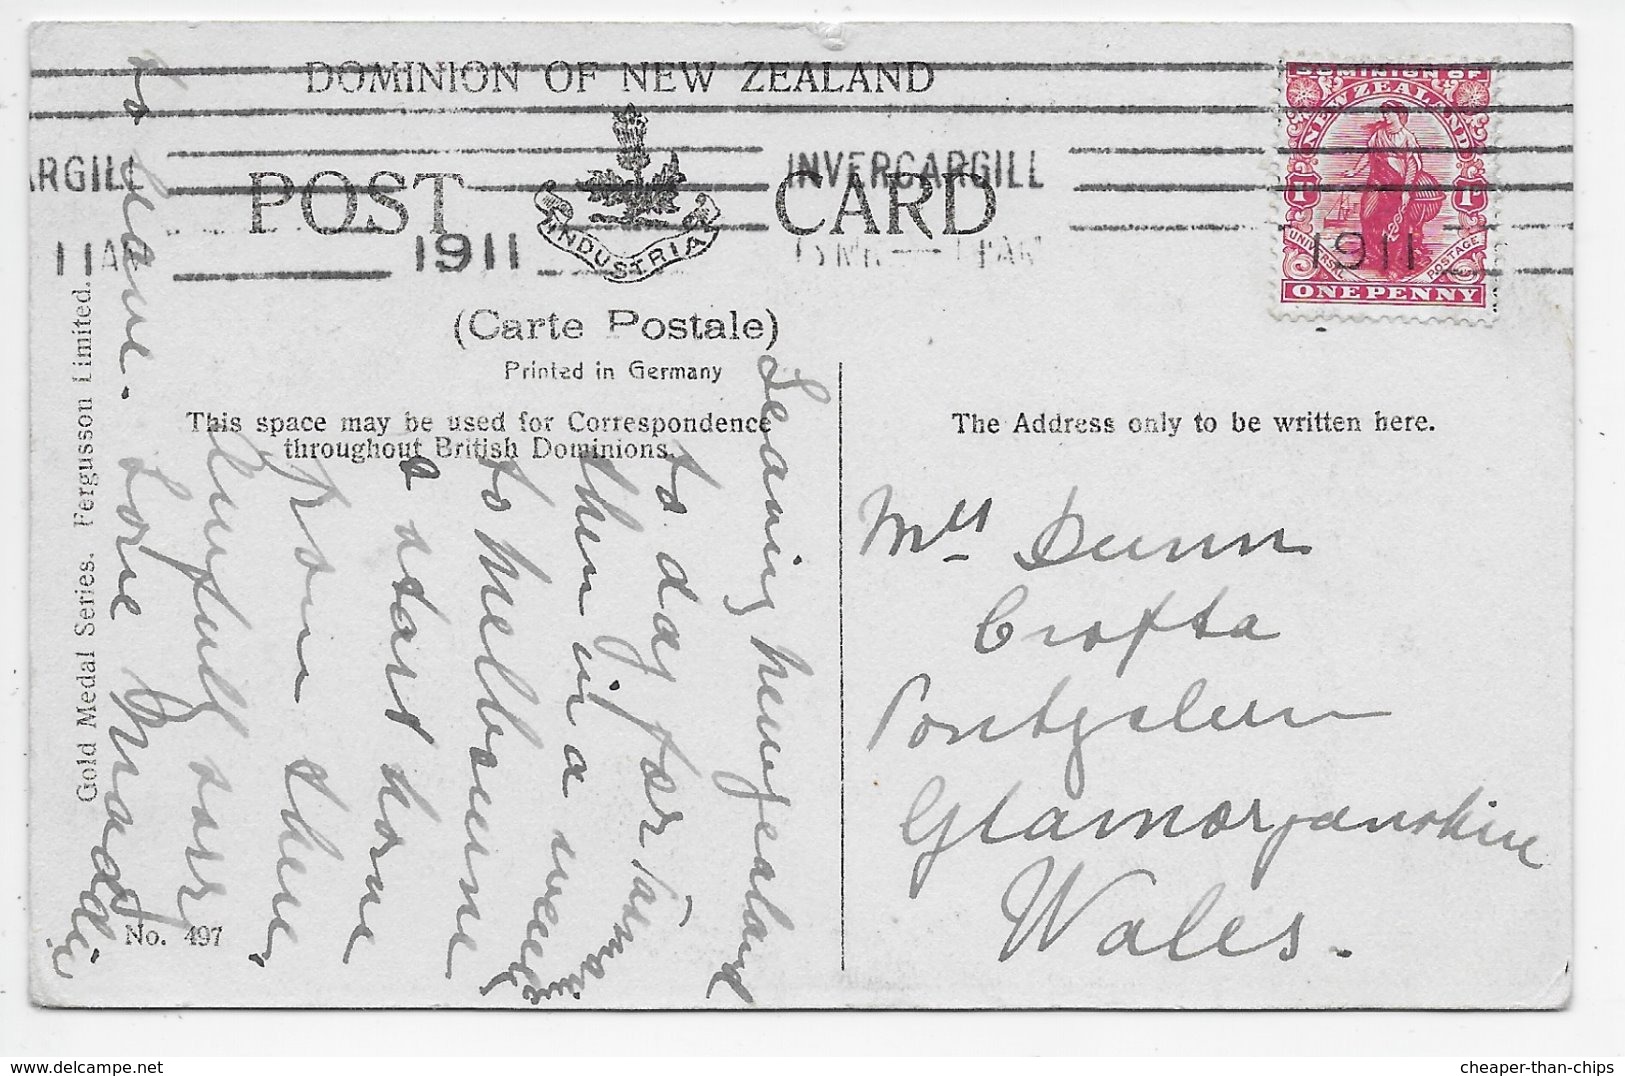 DOMINION OF NEW ZEALAND
POST CARD
INDUSTRIA
ARGILL
11AM
1911
INVERCARGILL
1911
DOMINION OF
NEW ZEALAND
1D 1D
UNIVERSAL POSTAGE
ONE PENNY
(Carte Postale)
Printed in Germany
This space may be used for Correspondence
throughout British Dominions.
The Address only to be written here.
Leaving newzealand
to day for Tasmania
then in a week
to melbourne
& start home
from there
dreadfully sorry
to leave. Love
Mrs Dunn
Crofta
Pontyclun
Glamorganshire
Wales.
Gold Medal Series. Fergusson Limited.
No. 497
cheaper-than-chips